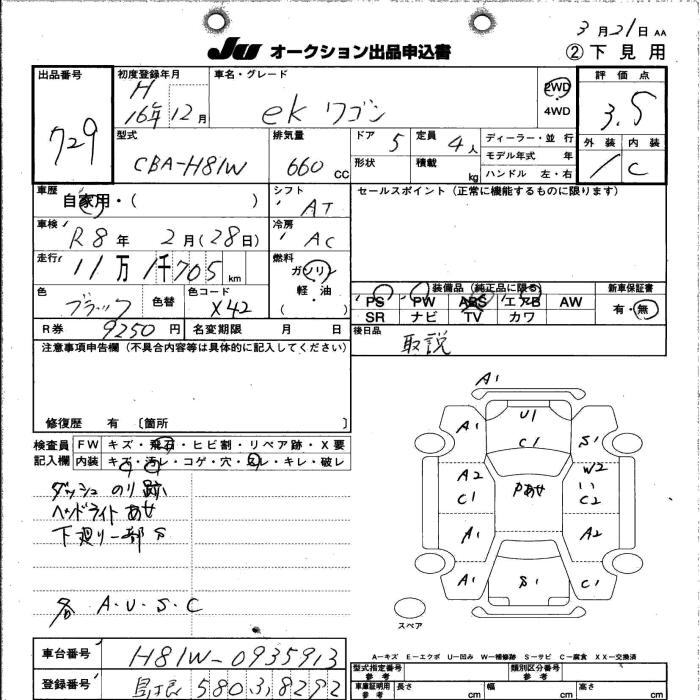 3月21日 AA
JU オークション出品申込書
②下見用
出品番号
729
初度登録年月
H
16年12月
車名・グレード
ek ワゴン
2WD
4WD
評価点
3.5
外装 内装
1 C
型式
CBA-H81W
排気量
660 CC
ドア 5
定員 4人
形状
積載 kg
ディーラー・並行
モデル年式 年
ハンドル 左・右
車歴
自家用・( )
シフト
AT
セールスポイント(正常に機能するものに限ります)
車検
R8年 2月(28日)
冷房
AC
走行
11万1千705km
燃料
ガソリン
軽・油
( )
色
ブラック
色替
色コード
X42
装備品(純正品に限る)
PS PW ABS エアB AW
SR ナビ TV カワ
新車保証書
有・無
R券 9250円
名変期限 月 日
後日品
取説
注意事項申告欄(不具合内容等は具体的に記入してください)
修復歴 有 〔箇所 〕
検査員
記入欄
FW キズ・飛石・ヒビ割・リペア跡・X要
内装 キズ・汚レ・コゲ・穴・スレ・キレ・破レ
ダッシュ のり跡
ヘッドライト あせ
下廻り一部S
各 A.U.S.C
A1
A1
U1
C1
S1
A2
C1
Pあせ
W2
C2
A1
A2
A1
S1
C1
スペア
A-キズ E-エクボ U-凹み W-補修跡 S-サビ C-腐食 XX-交換済
車台番号
H81W-0935913
登録番号
島根 580 3 8292
型式指定番号
参考
類別区分番号
参考
車庫証明用
参考
長さ cm
幅 cm
高さ cm